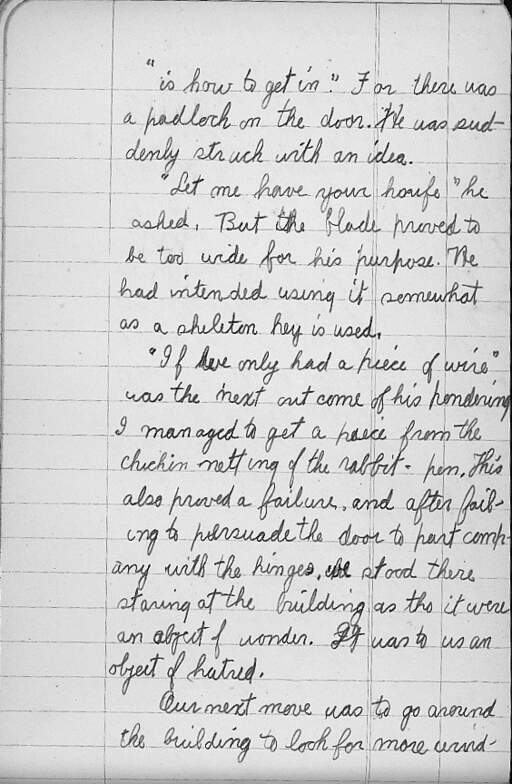 "is how to get in." For there was
a padlock on the door. He was sud-
denly struck with an idea.
"Let me have your knife" he
asked. But the blade proved to
be too wide for his purpose. He
had intended using it somewhat
as a skeleton key is used.
"If we only had a piece of wire"
was the next out come of his pondering
I managed to get a piece from the
chickin netting of the rabbit-pen. This
also proved a failure, and after fail-
ing to persuade the door to part comp-
any with the hinges, we stood there
staring at the building as tho it were
an object of wonder. It was to us an
object of hatred.
Our next move was to go around
the building to look for more wind-